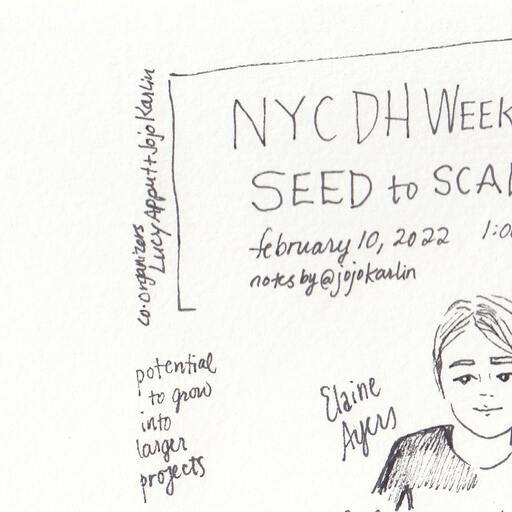 co-organizers
Lucy Appert + Jojo Karlin
NYC DH WEEK
SEED to SCAL
february 10, 2022 1:0
notes by @jojokarlin
potential
to grow
into
larger
projects
Elaine
Ayers